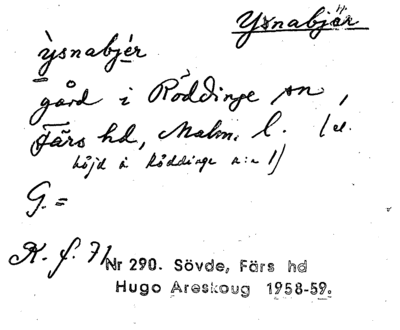 Ysnabjär
ỳsnabjér
gård i Röddinge sn,
Färs hd, Malm. l. (el.
höjd å Röddinge n:a 1)
G. =
K. f. 71
Nr 290. Sövde, Färs hd
Hugo Areskoug 1958-59.